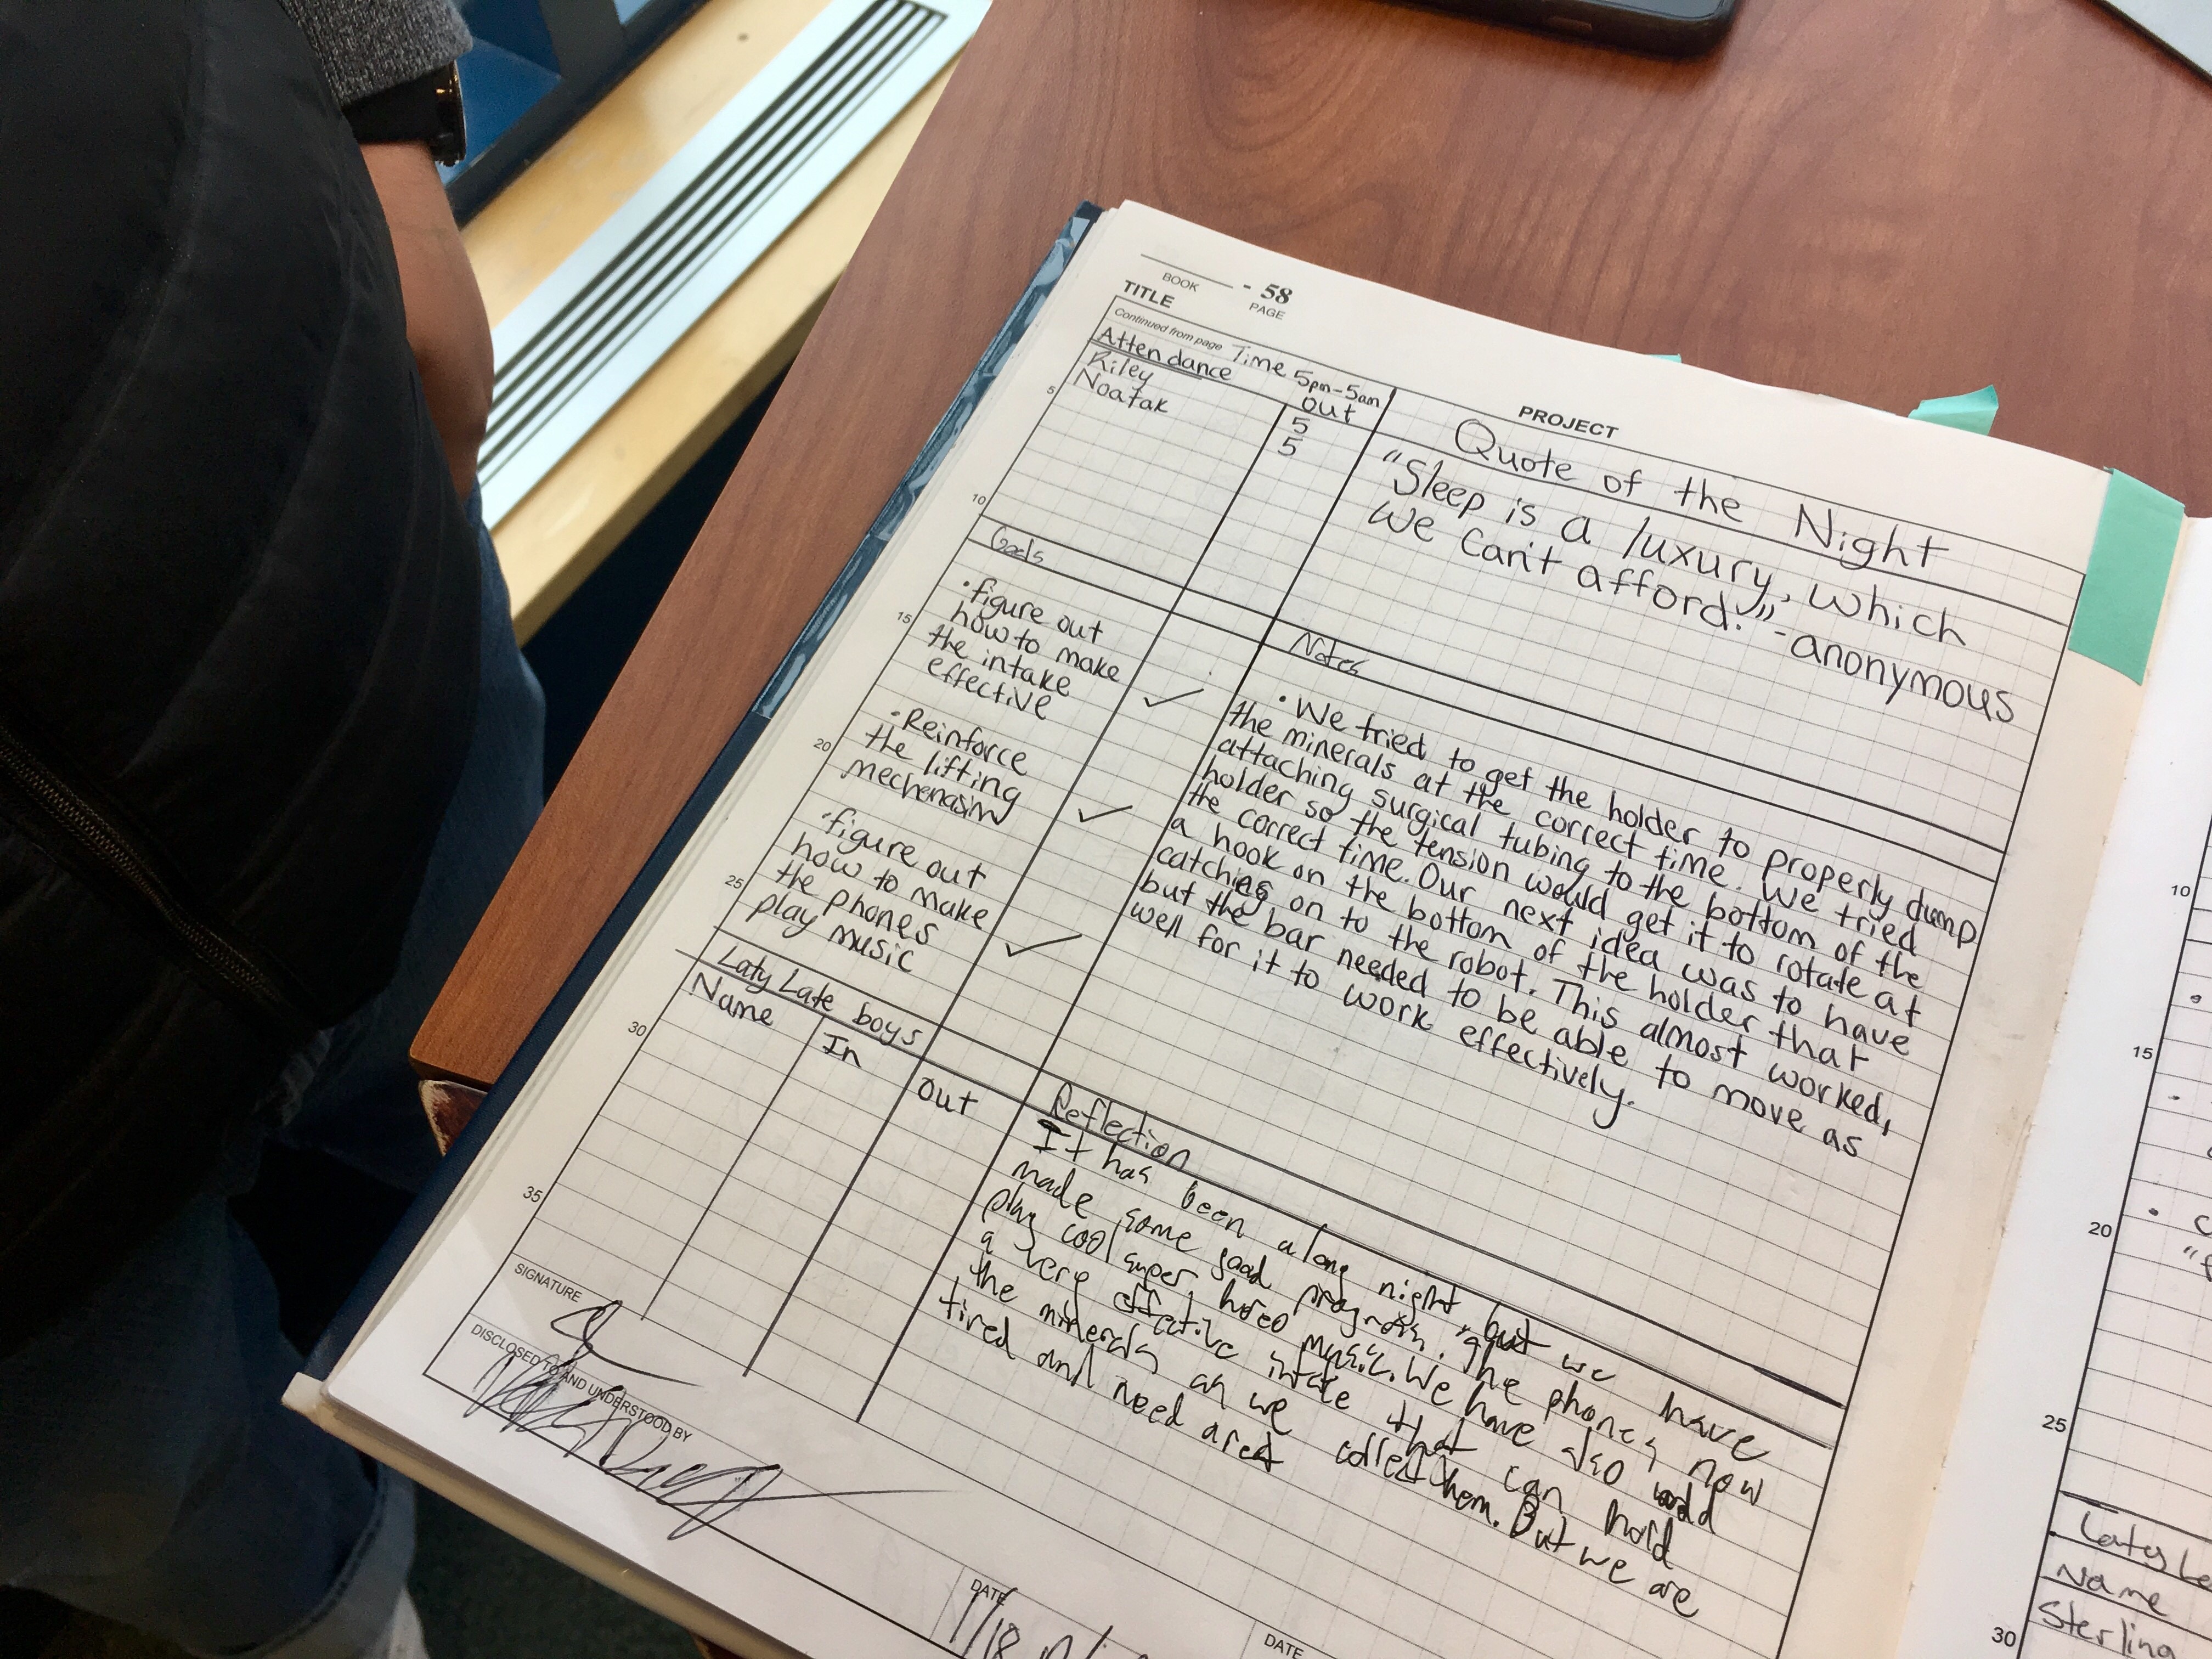 BOOK
- 58
PAGE
TITLE
PROJECT
Continued from page
Time 5pm-5am
Attendance
out
Riley
5
Noatak
5
Quote of the Night
"Sleep is a luxury, which
we can't afford." -anonymous
5
10
15
20
25
30
35
Goals
• figure out
how to make
the intake
effective
• Reinforce
the lifting
mechenasim
• figure out
how to make
the phones
play music
Notes
• We tried to get the holder to properly dump
the minerals at the correct time. We tried
attaching surgical tubing to the bottom of the
holder so the tension would get it to rotate at
the correct time. Our next idea was to have
a hook on the bottom of the holder that
catches on to the robot. This almost worked,
but the bar needed to be able to move as
well for it to work effectively.
Laty Late boys
Name
In
out
Reflection
It has been a long night but we have
made some good progress. The phones now
play cool super hereo music. We have also
a very effective intake that can hold
the minerals as we collect them. But we are
tired and need a rest
SIGNATURE
DISCLOSED TO AND UNDERSTOOD BY
DATE
DATE
10
15
20
25
30
Laty La
Name
Sterling